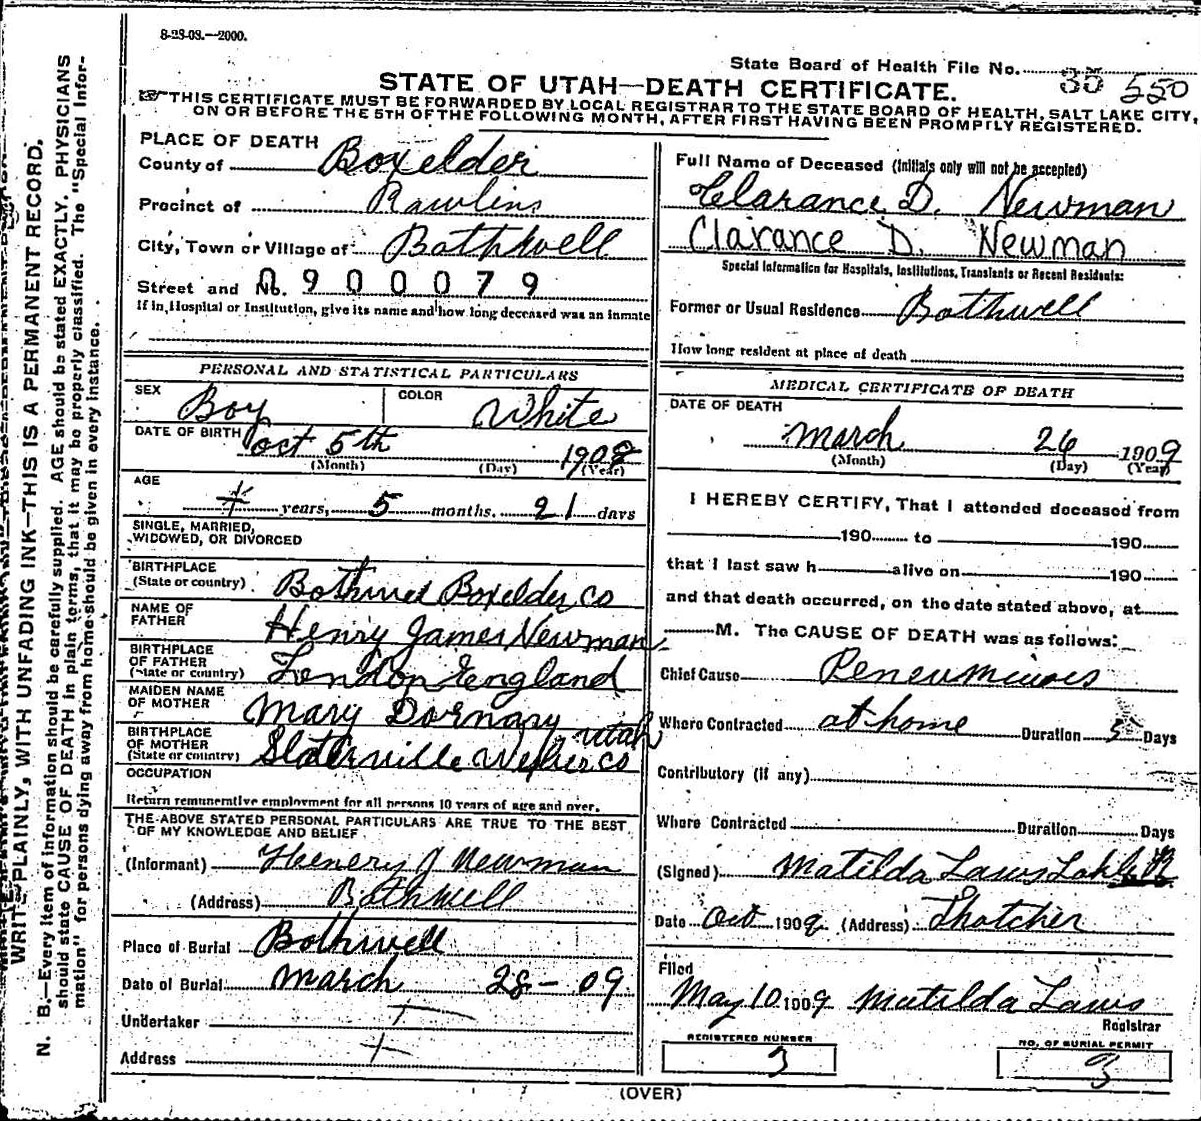 8-28-08.—2000.
State Board of Health File No. 35 550
STATE OF UTAH—DEATH CERTIFICATE.
THIS CERTIFICATE MUST BE FORWARDED BY LOCAL REGISTRAR TO THE STATE BOARD OF HEALTH, SALT LAKE CITY,
ON OR BEFORE THE 5TH OF THE FOLLOWING MONTH, AFTER FIRST HAVING BEEN PROMPTLY REGISTERED.
WRITE PLAINLY, WITH UNFADING INK—THIS IS A PERMANENT RECORD.
N. B.—Every item of information should be carefully supplied. AGE should be stated EXACTLY. PHYSICIANS
should state CAUSE OF DEATH in plain terms, that it may be properly classified. The "Special Infor-
mation" for persons dying away from home should be given in every instance.
PLACE OF DEATH
County of Boxelder
Precinct of Rawlins
City, Town or Village of Bothwell
Street and No. 0900079
If in Hospital or Institution, give its name and how long deceased was an inmate
PERSONAL AND STATISTICAL PARTICULARS
SEX Boy COLOR White
DATE OF BIRTH Oct 5th 1908
(Month) (Day) (Year)
AGE
years, 5 months, 21 days
SINGLE, MARRIED,
WIDOWED, OR DIVORCED
BIRTHPLACE
(State or country) Bothwel Boxelder co
NAME OF
FATHER Henry James Newman
BIRTHPLACE
OF FATHER
(State or country) London England
MAIDEN NAME
OF MOTHER Mary
BIRTHPLACE
OF MOTHER
(State or country) Slaterville Weber co Utah
OCCUPATION
Return remunerative employment for all persons 10 years of age and over.
THE ABOVE STATED PERSONAL PARTICULARS ARE TRUE TO THE BEST
OF MY KNOWLEDGE AND BELIEF
(Informant) Henery J Newman
(Address) Bothwell
Place of Burial Bothwell
Date of Burial March 28 - 09
Undertaker
Address
Full Name of Deceased (Initials only will not be accepted)
Clarance D. Newman
Clarance D. Newman
Special Information for Hospitals, Institutions, Transients or Recent Residents:
Former or Usual Residence Bothwell
How long resident at place of death
MEDICAL CERTIFICATE OF DEATH
DATE OF DEATH
March 26 1909
(Month) (Day) (Year)
I HEREBY CERTIFY, That I attended deceased from
190 to 190
that I last saw h alive on 190
and that death occurred, on the date stated above, at
M. The CAUSE OF DEATH was as follows:
Chief Cause
Where Contracted at home Duration 5 Days
Contributory (if any)
Where Contracted Duration Days
(Signed) Matilda Laws
Date Oct 1909 (Address) Thatcher
Filed
May 10 1909 Matilda Laws
Registrar
REGISTERED NUMBER
3
NO. OF BURIAL PERMIT
3
(OVER)